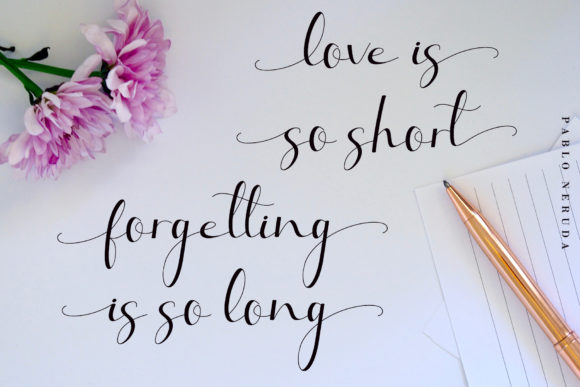 love is
so short
forgetting
is so long
PABLO NERUDA